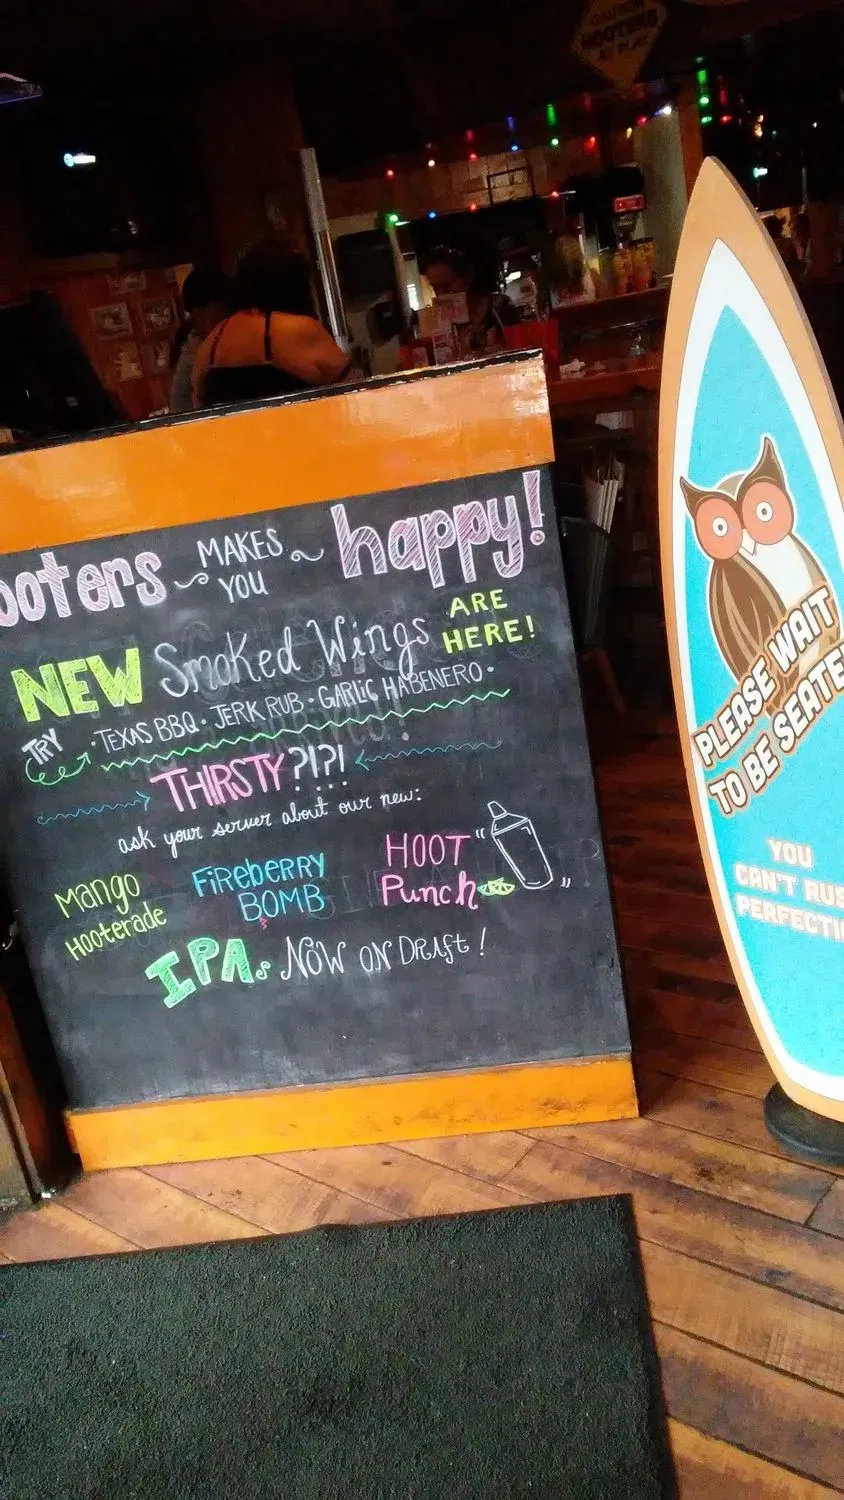 CAUTION
HOOTERS
AT PLAY
ooters MAKES YOU happy!
NEW Smoked Wings ARE HERE!
TRY · TEXAS BBQ · JERK RUB · GARLIC HABENERO ·
THIRSTY?!?!
ask your server about our new:
Mango Hooterade
FireBERRY BOMB
HOOT Punch
IPAs NOW ON DRAft!
PLEASE WAIT
TO BE SEATE
YOU
CAN'T RUS
PERFECTI